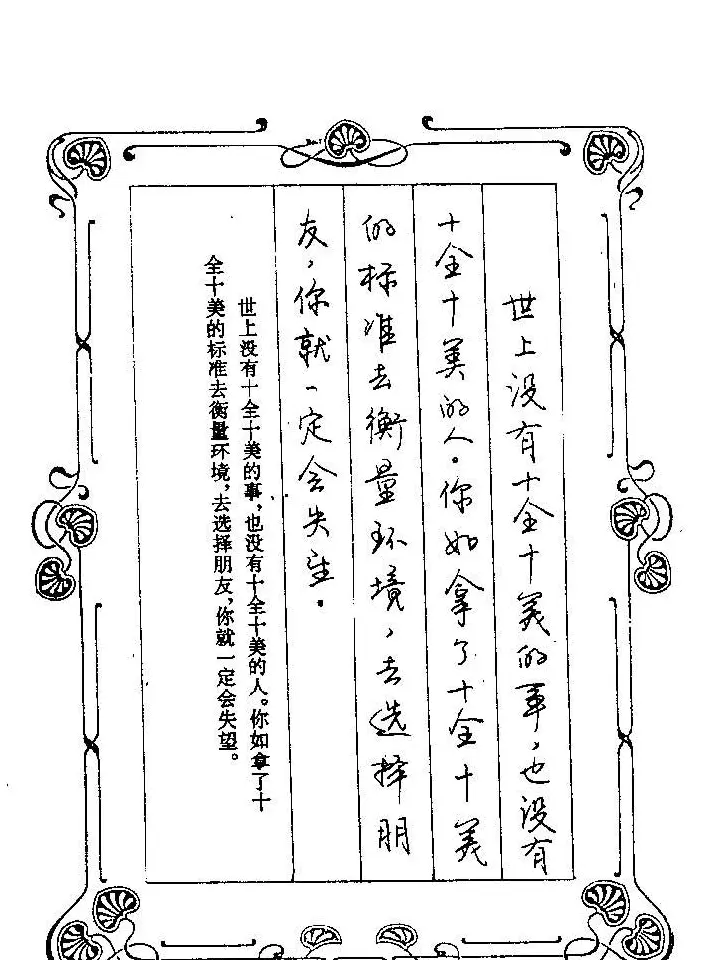 世上没有十全十美的事，也没有
十全十美的人。你如拿了十全十美
的标准去衡量环境，去选择朋
友，你就一定会失望。
世上没有十全十美的事，也没有十全十美的人。你如拿了十
全十美的标准去衡量环境，去选择朋友，你就一定会失望。